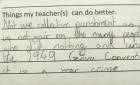 Things my teacher(s) can do better.
Not use collective punishment as
is not fair on the many people
who did nothing and under
the 1949 Geneva Conventi
it is a war crime